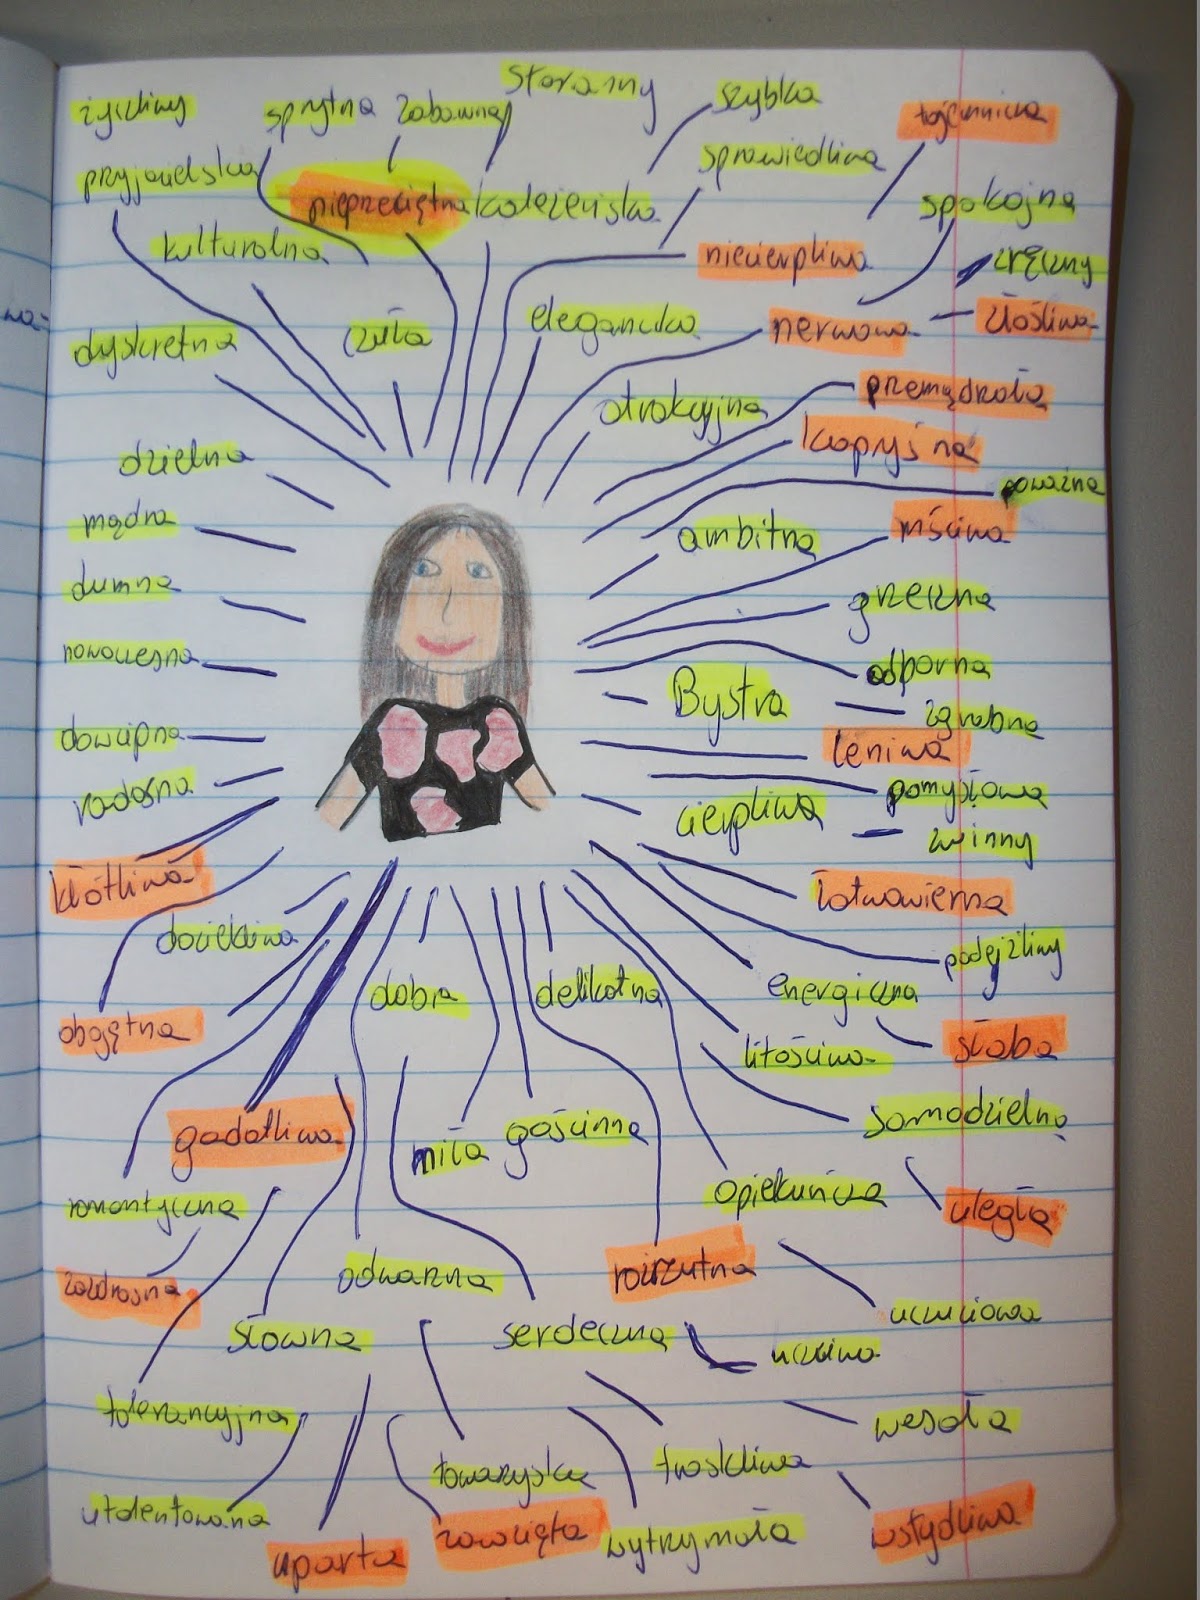 staranny
życzliwy
sprytna
zabawna
szybka
tajemnicza
przyjacielska
sprawiedliwa
nieprzeciętna
koleżeńska
spokojna
kulturalna
niecierpliwa
zręczny
dyskretna
czuła
elegancka
nerwowa
złośliwa
atrakcyjna
przemądrzała
kapryśna
dzielna
poważna
mądra
ambitna
mściwa
dumna
grzeczna
nowoczesna
odporna
Bystra
zgrabna
dowcipna
leniwa
radosna
pomysłowa
cierpliwa
zwinny
kłótliwa
łatwowierna
dociekliwa
podejżliwy
dobra
delikatna
energiczna
obojętna
słaba
litościwa
gadatliwa
miła
gościnna
samodzielna
romantyczna
opiekuńcza
uległa
zazdrosna
odważna
rozrzutna
uczuciowa
słowna
serdeczna
uczciwa
tolerancyjna
wesoła
towarzyska
troskliwa
utalentowana
uparta
zawzięta
wytrzymała
wstydliwa